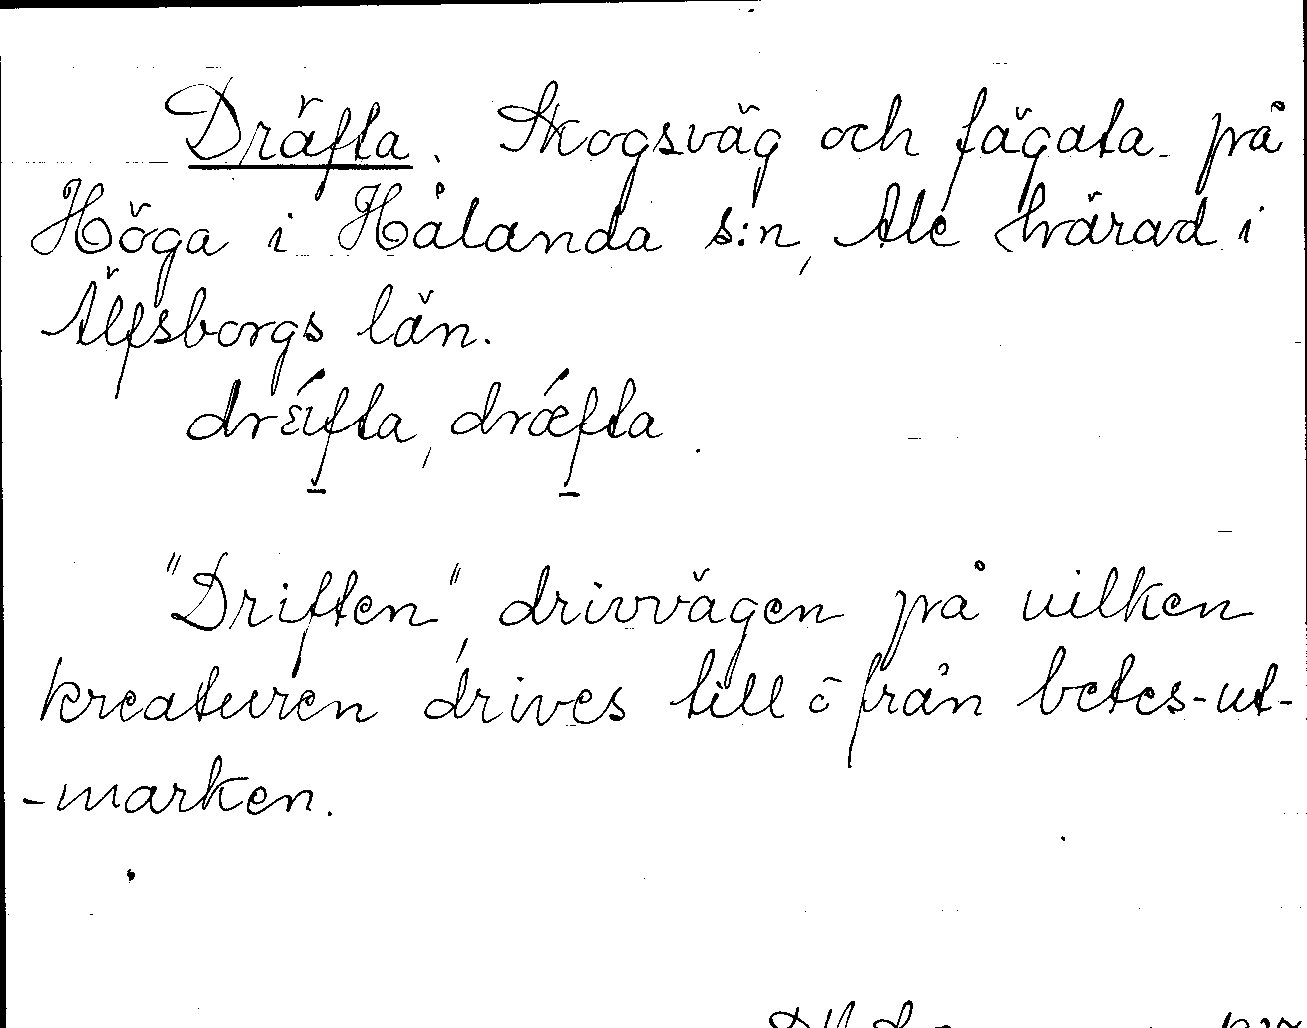 Dräfta. Skogsväg och fägata på
Höga i Hålanda s:n, Ale härad i
Älfsborgs län.
dræ̂fta, drǽfta.
"Driften", drivvägen på vilken
kreaturen drives till ō från betes-ut-
-marken.